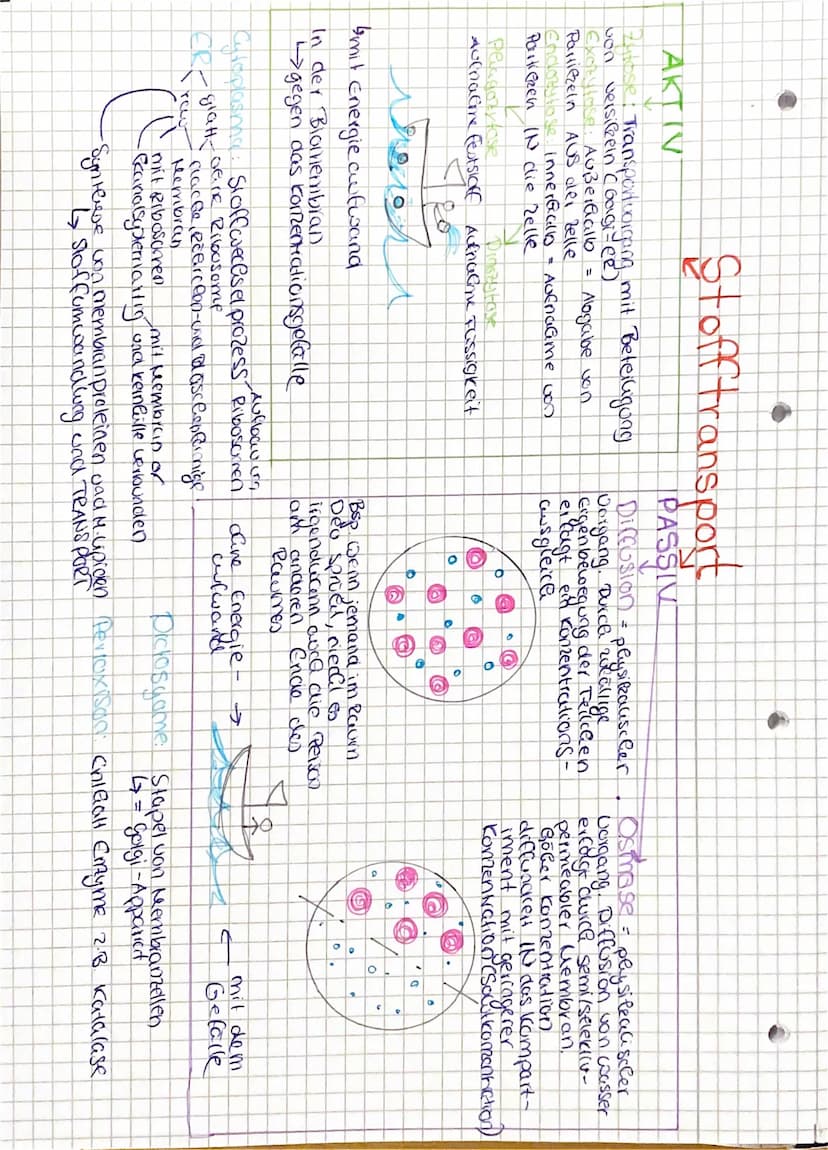 Stofftransport
AKTIV
Zytose: Transportvorgang mit Beteiligung
von Vesikeln (Googi+ER)
Exozytose: Außerhalb = Abgabe von
Partikeln AUS der Zelle
Endozytose innerhalb = Aufnahme von
Partikeln IN die Zelle
Phagozytose Pinozytose
Aufnahme Feststoff Aufnahme Flüssigkeit
↳mit Energieaufwand
In der Biomembran
↳gegen das Konzentrationsgefälle
PASSIV
Diffusion = physikalischer
Vorgang. Durch zufällige
Eigenbewegung der Teilchen
erfolgt ein Konzentrations-
ausgleich
Bsp wenn jemand im Raum
Deo sprüht, riecht es
irgendwann auch die Person
am anderen Ende des
Raumes
ohne Energie- →
aufwand
Osmose = physikalischer
Vorgang. Diffusion von Wasser
erfolgt durch semi/selektiv-
permeabler Membran.
Hoher Konzentration
diffundiert IN das Kompart-
iment mit geringerer
Konzentration (Salzkonzentration)
← mit dem
Gefälle
Cytoplasma: Stoffwechselprozess - Aufbau von
Ribosomen
ER < glatt - ohne Ribosome
rau - flache, röhren- und bläschenförmige
Membran
mit Ribosomen - mit Membran or
Kanalsystemartig und Kernhülle verbunden
Synthese von Membranproteinen und M.lipiden
↳ Stoffumwandlung und TRANSPORT
Dictosyome: Stapel von Membranzellen
↳ = Golgi-Apparat
Peroxison: Enthält Enzyme z.B Katalase